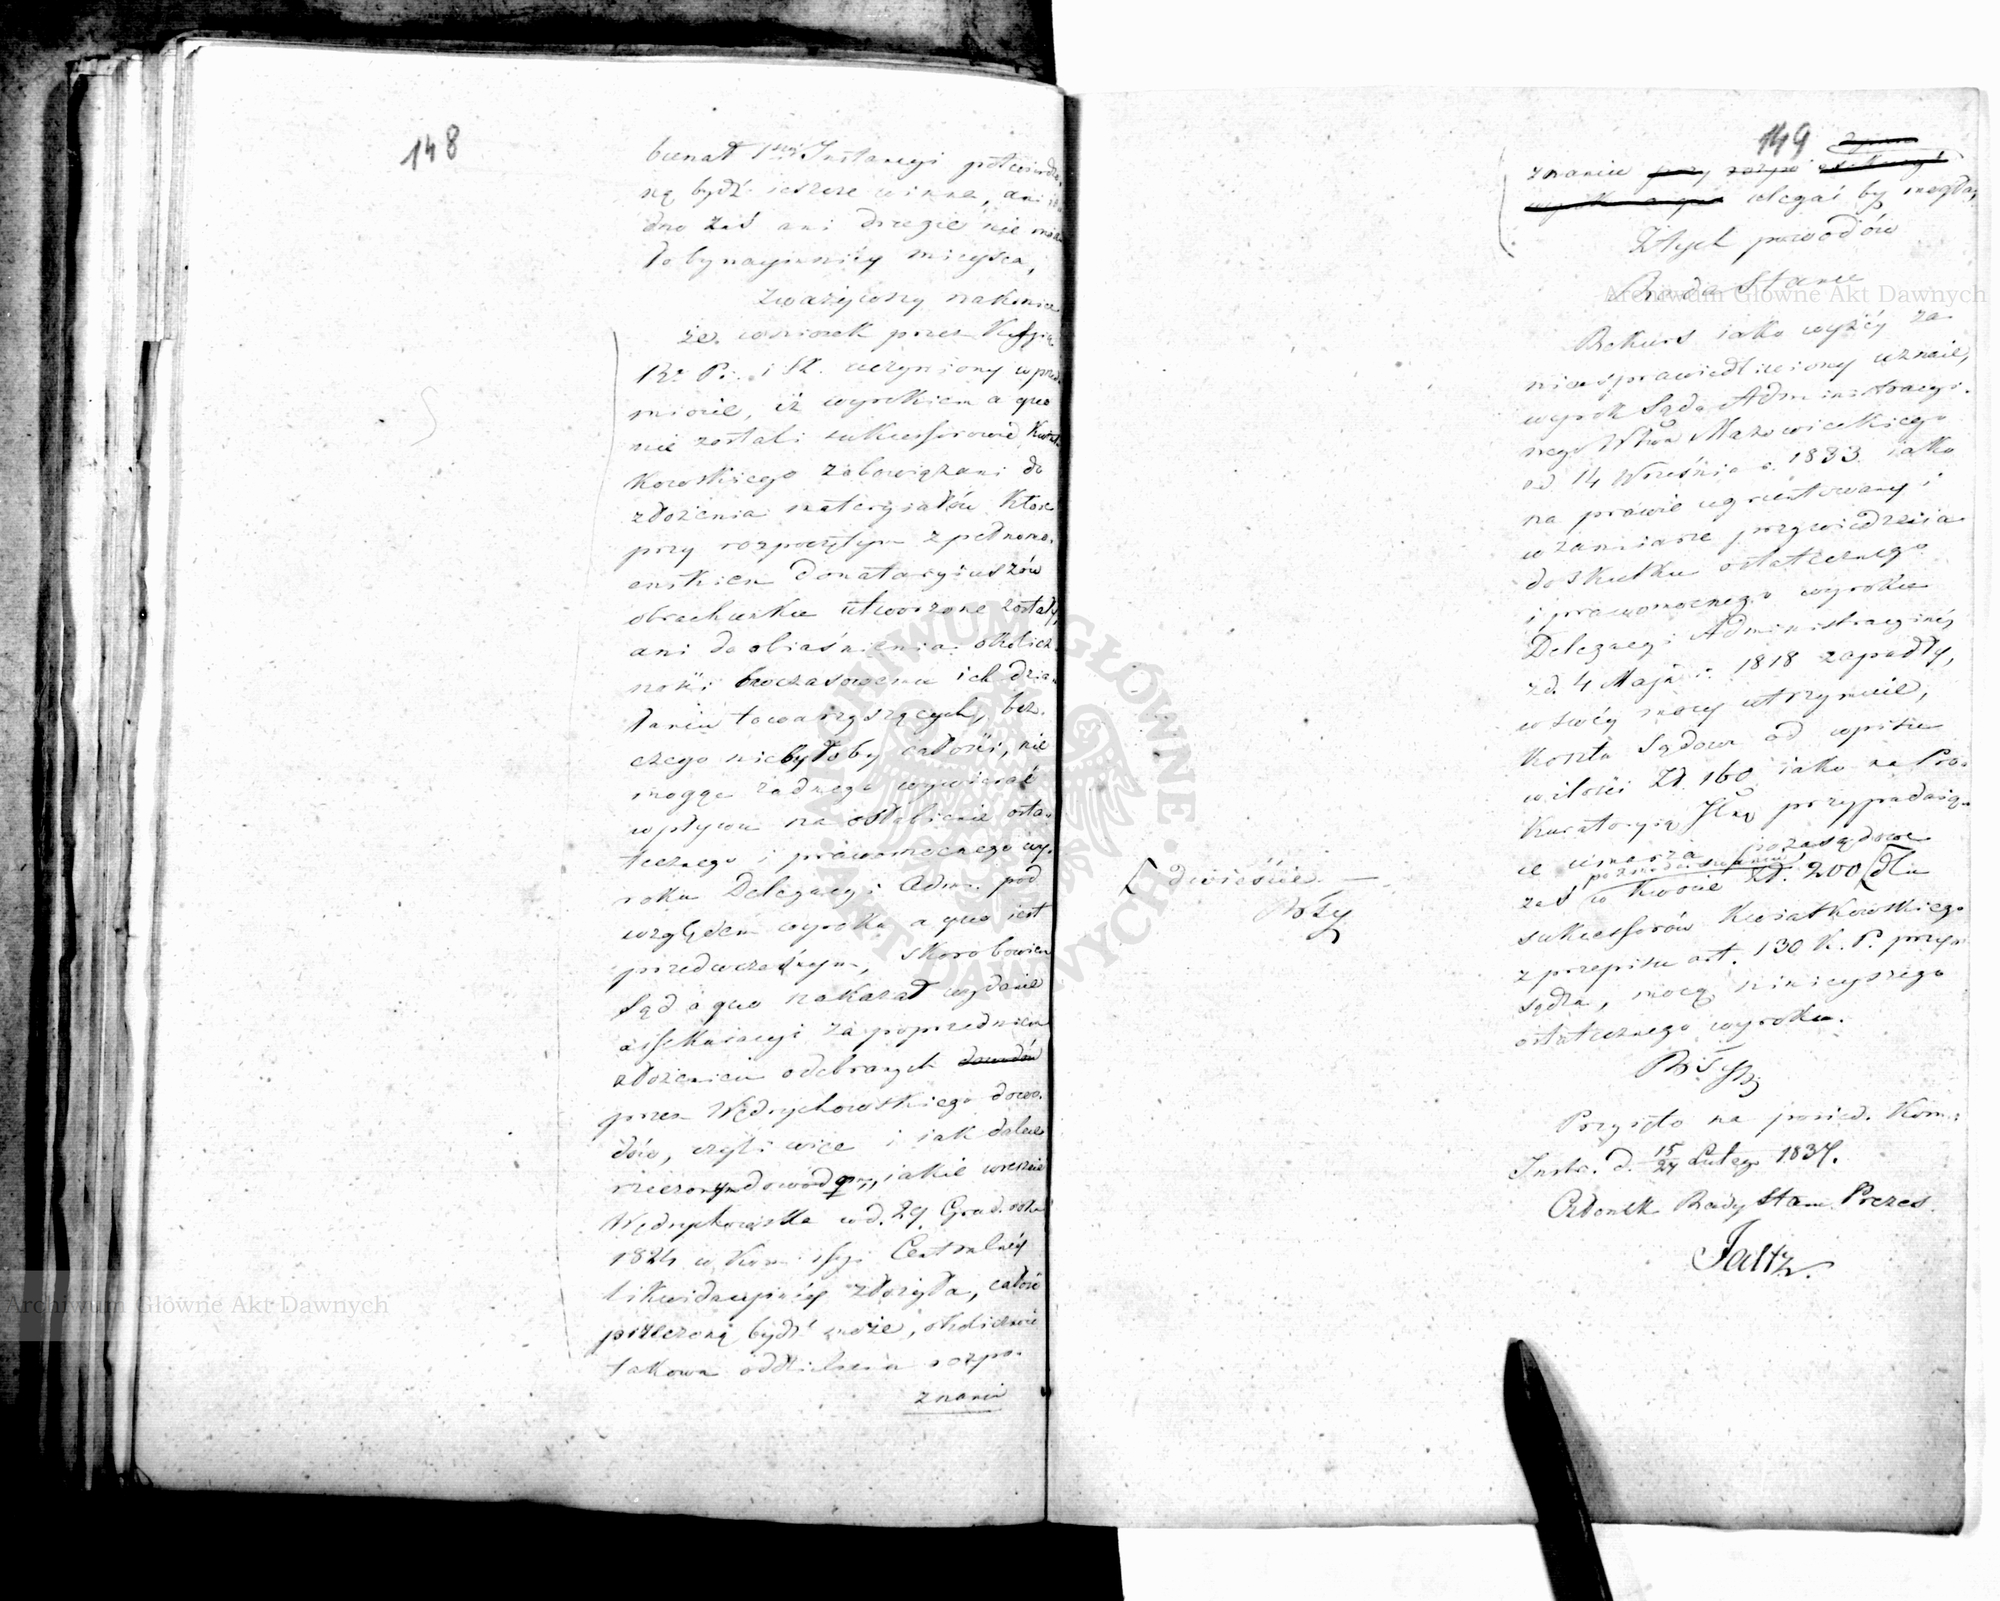 148
bunał 1szej Instancyi potwierdzo
ną bydź ieszcze winna, ani
dno zaś ani drugie nie mia
ło bynaymniéy mieysca,
Zważywszy nakoniec
że wniosek przez Kussyą
R. P. i Sk. uczyniony w przed
miocie, iż wyrokiem a quo
nie zostali sukcessorowie Kwiat
kowskiego zobowiązani do
złożenia materyałów, które
przy rozpoczętym z pełnomo
cnikiem donataryuszów
obrachunku utworzone zostały,
ani do obiaśnienia okolicz
ności ówczasowemu ich dzia
łaniu towarzyszących, bez
czego nie byłoby całości, nie
mogąc żadnego wywierać
wpływu na osłabienie osta
tecznego i prawomocnego wy
roku Delegacyi Adm. pod
względem wyroku a quo iest
przedwczesnym, skoro bowiem
Sąd a quo nakazał wydanie
assekuracyi za poprzedniem
złożeniem odebranych dowodów
przez Wędrychowskiego dowo
dów, czyli więc i iak dalece
rzeczonym dowodom, iakie wreszcie
Wędrychowska w d. 29 Grud. roku
1824 w Kommissyi Centralnéy
Likwidacyinéy złożyła, całość
przyczoną bydź może, okoliczność
takowa oddzielnemu rozpo
znaniu
149
znaniu przy ulegać by mogła,
Z tych powodów
Rada Stanu
Rekurs iako wyżéy za
nieusprawiedliwiony uznaie,
wyrok Sądu Administracyi
nego Wdztwa Mazowieckiego
od 14 Września r. 1833 iako
na prawie ugruntowany i
w zamiarze przywiedzenia
do skutku ostatecznego
i prawomocnego wyroku
Delegacyi Administracyinéy
z d. 4 Maja r. 1818 zapadły,
w swéy mocy utrzymuie,
Koszta Sądowe od wpisu
w ilości Zł. 160 iako na Pro
kuratoryą Jlną przypadaią
ce umarza, pozasądowe
zaś w kwocie Zł. 200 [dla
[ dwieście. —
sukcessorów Kwiatkowskiego
z przepisu art. 130 K. P. przy
sądza, mocą ninieyszego
ostatecznego wyroku.
Przyięto na posied. Kom.
Instr. d. 15/27 Lutego 1837.
Członek Rady Stanu Prezes
Faltz.
Archiwum Główne Akt Dawnych
Archiwum Główne Akt Dawnych
ARCHIWUM GŁÓWNE AKT DAWNYCH